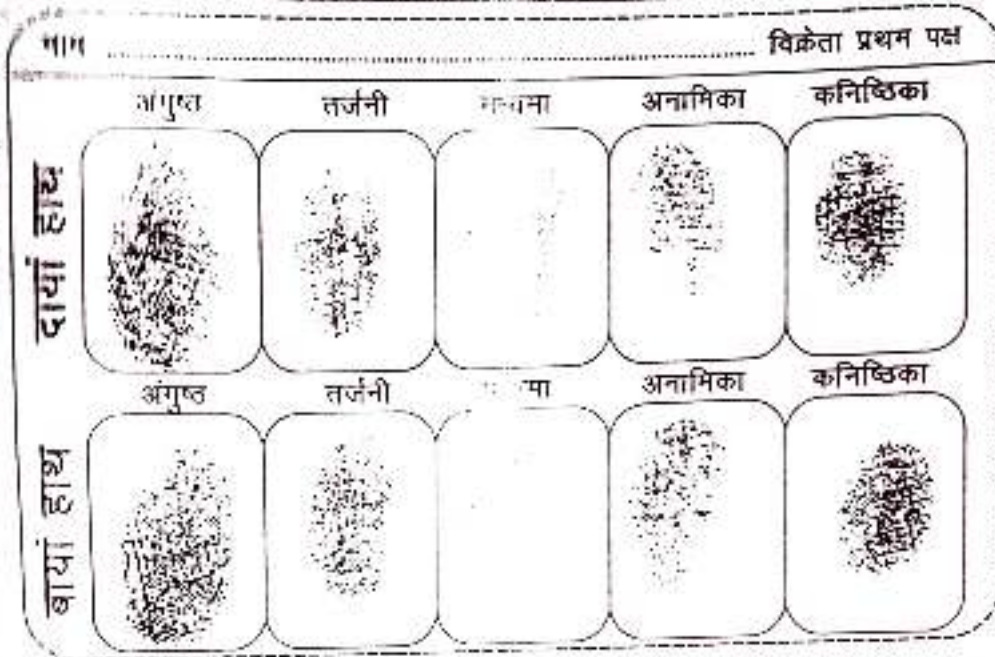 नाम ........................................ विक्रेता प्रथम पक्ष
अंगुष्त तर्जनी अनामिका कनिष्ठिका
दायां हाथ
अंगुष्ठ तर्जनी अनामिका कनिष्ठिका
बायां हाथ